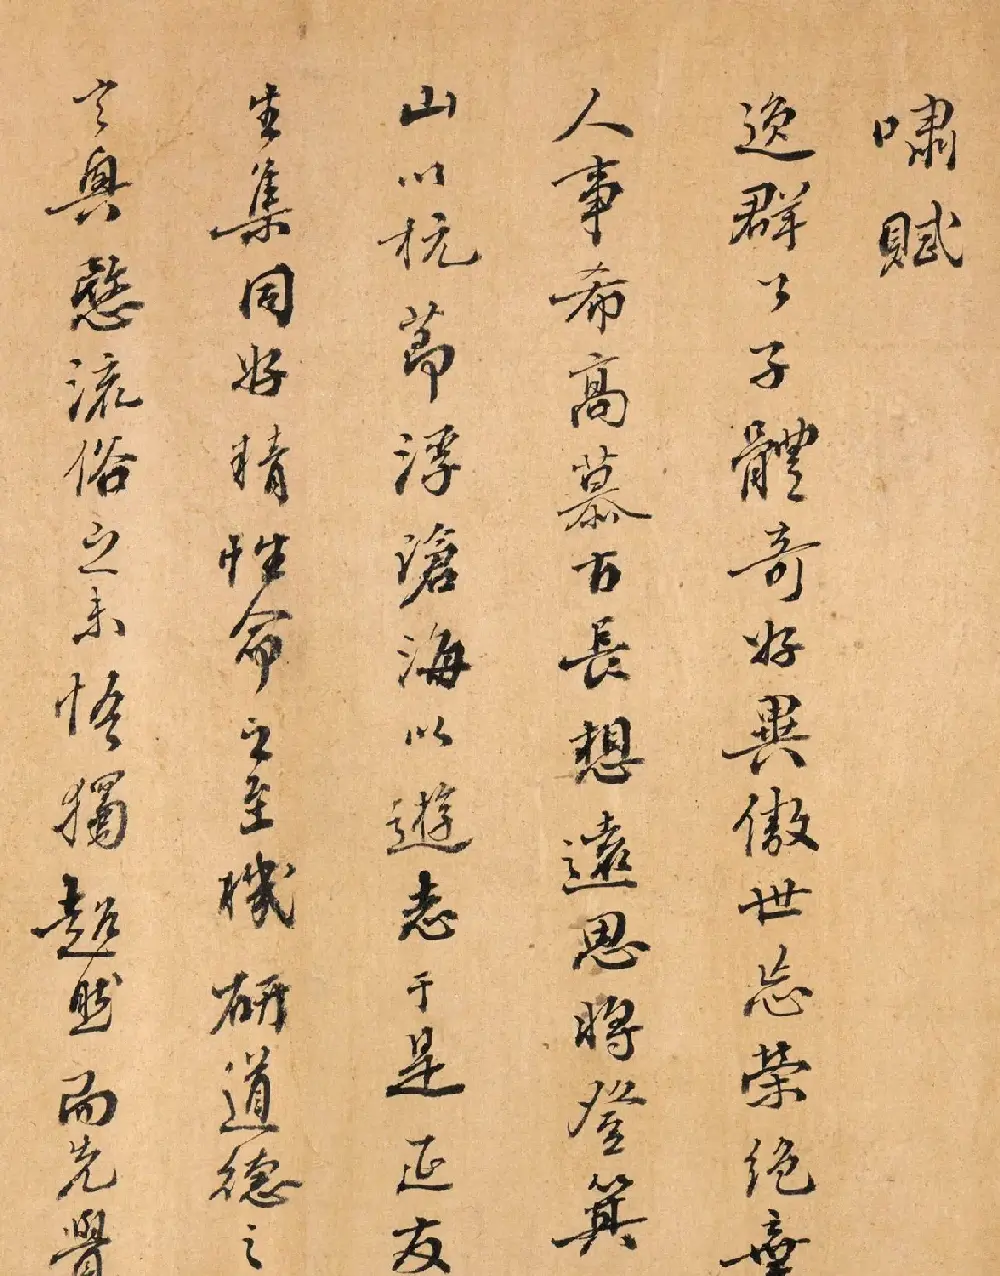 嘯賦
逸群公子體奇好異傲世忘榮絕棄
人事希高慕古長想遠思將登箕
山以抗節浮滄海以遊志于是延友
生集同好精性命之至機研道德之
玄奧愍流俗之未悟獨超然而先覺